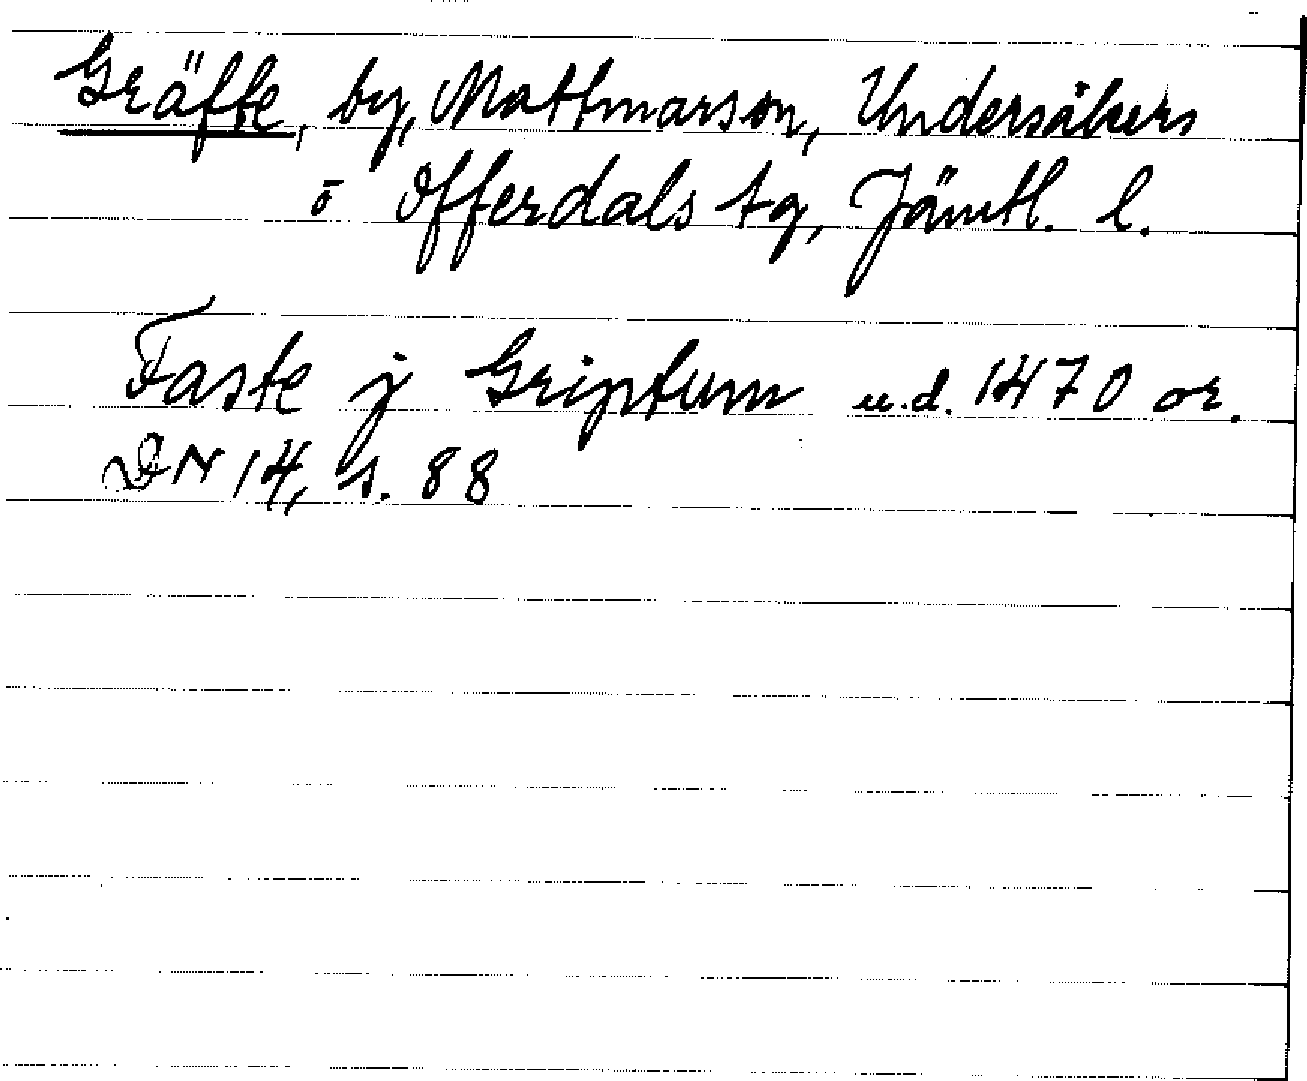 Gräfte, by, Mattmarson, Undersåkers
o Offerdals tg, Jämtl. l.
Faste j Griptum u.d. 1470 or.
DN 14, s. 88